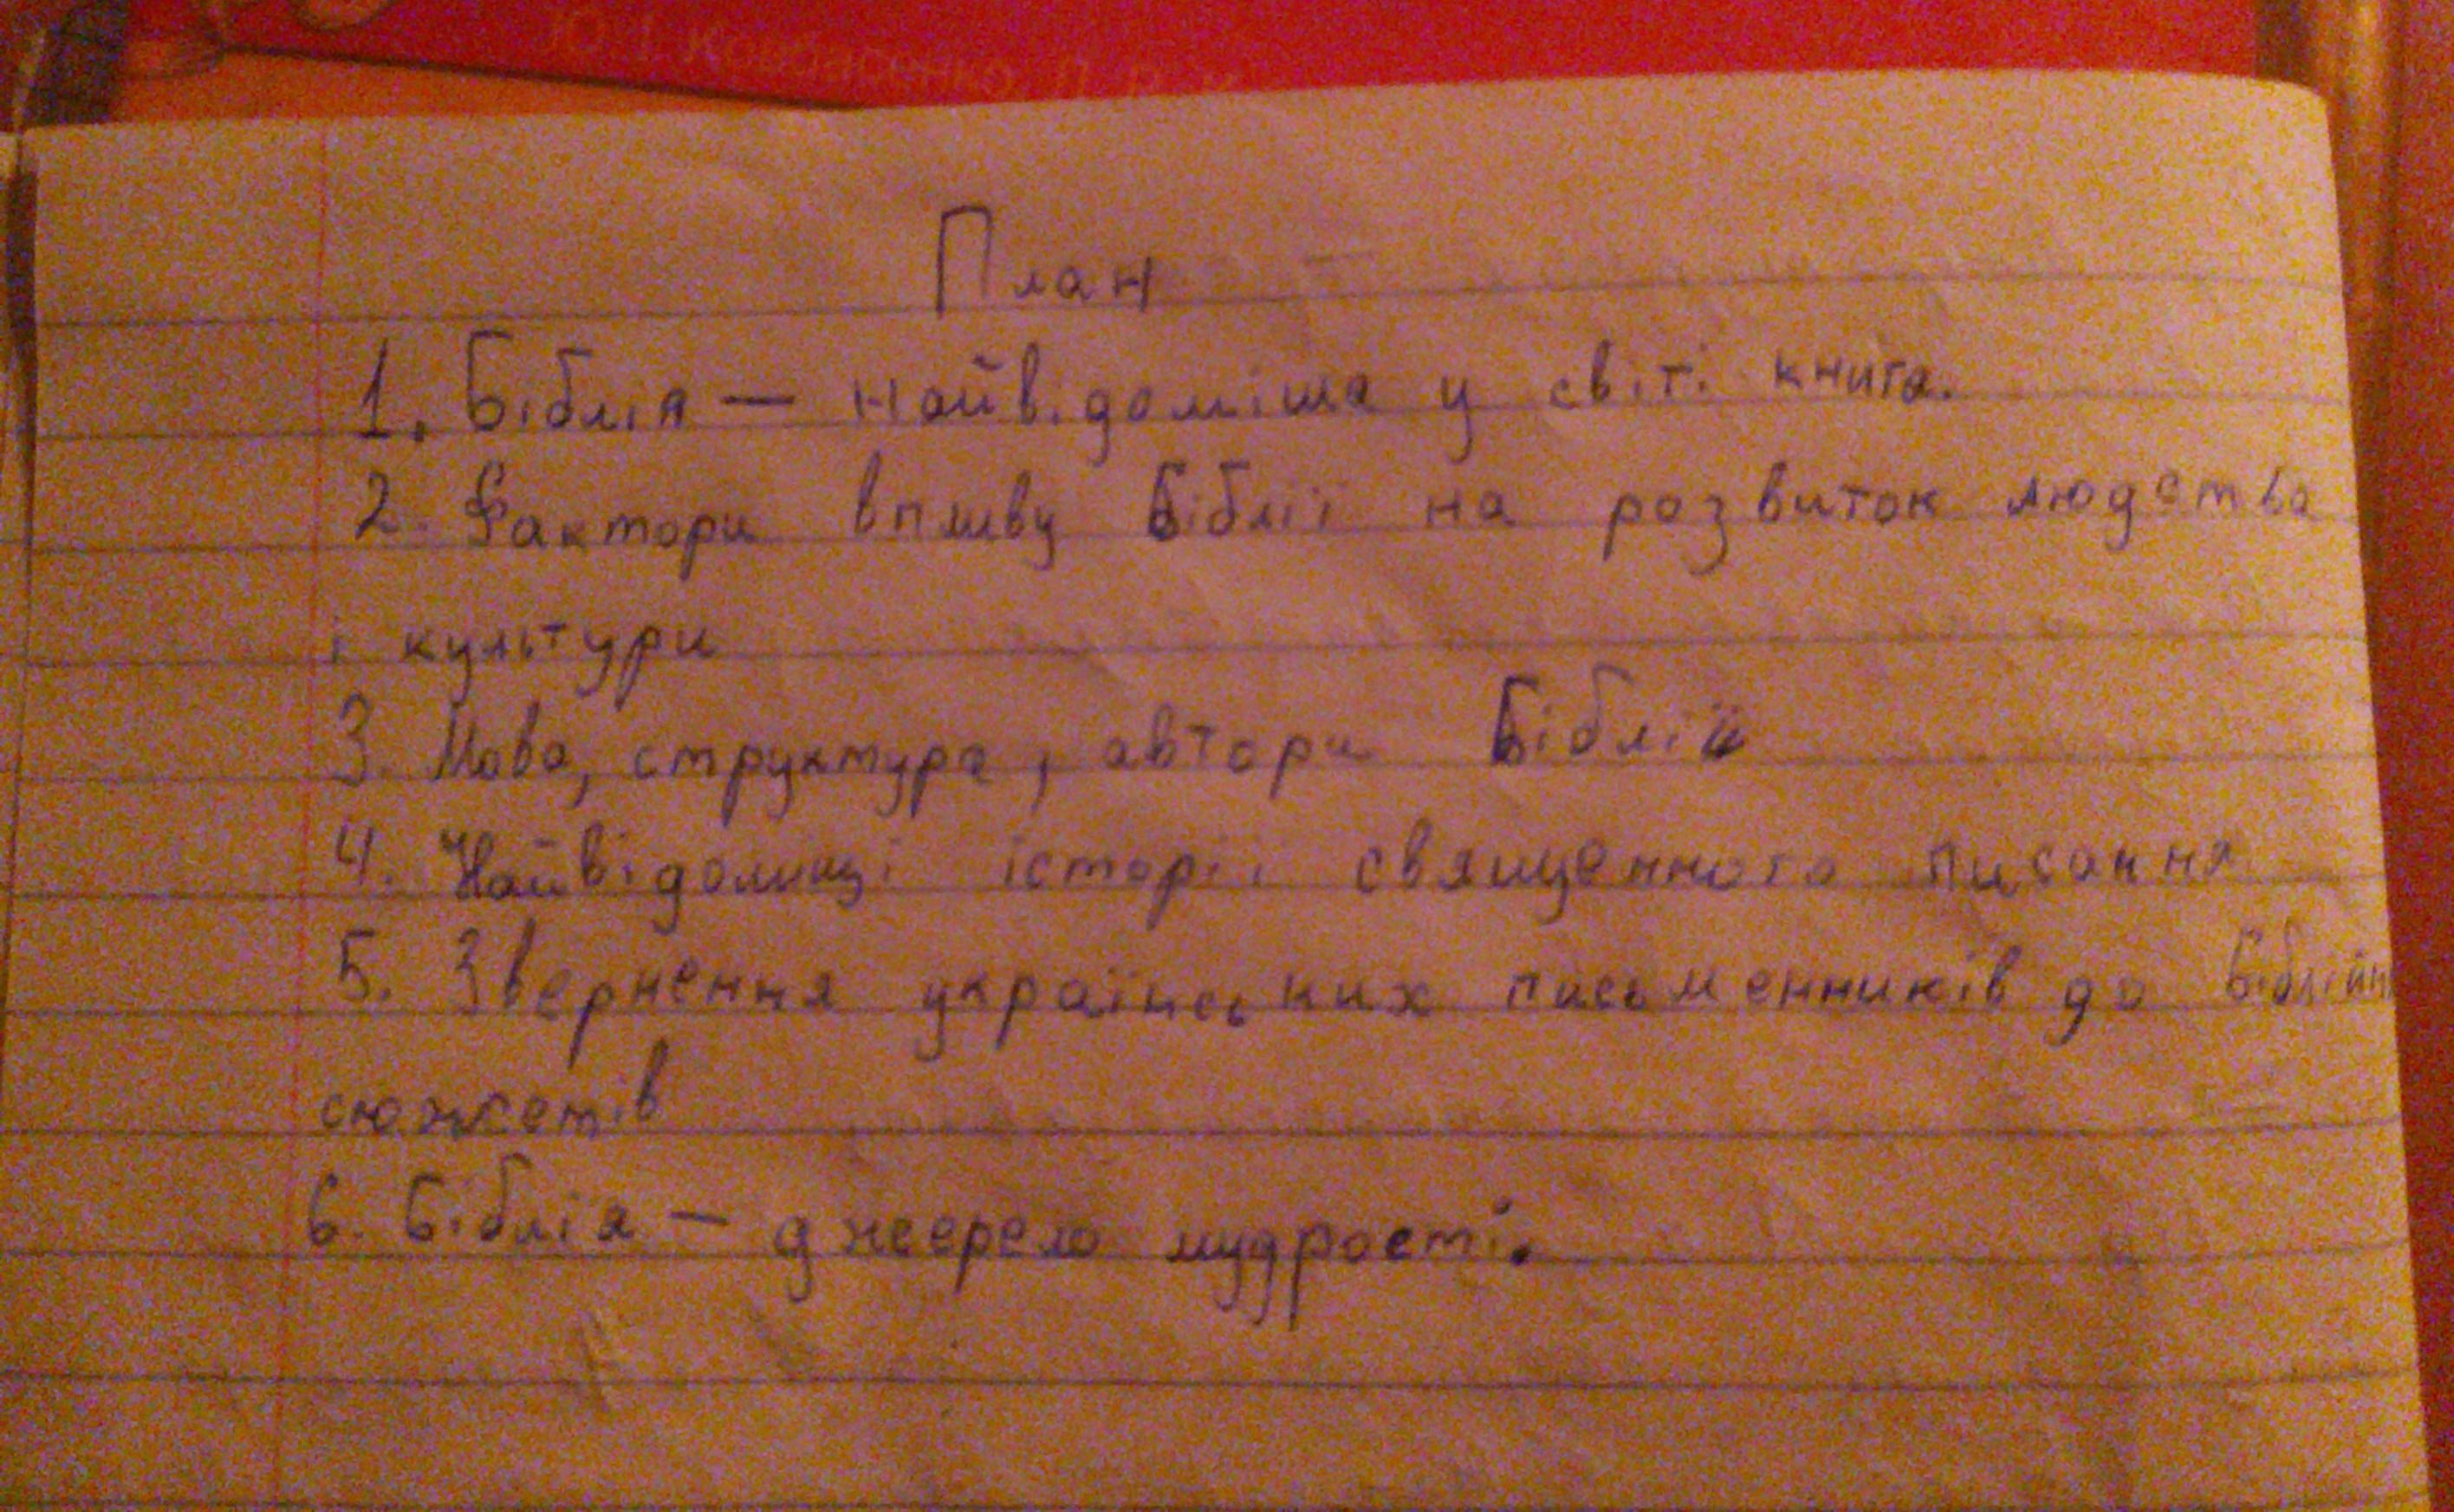 Ю. І. Ковбасенко, Л. В.
План
1. Біблія — найвідоміша у світі книга.
2. Фактори впливу Біблії на розвиток людства
і культури
3. Мова, структура, автори Біблії
4. Найвідоміщі історії священного писання
5. Звернення українських письменників до Біблійн
сюжетів
6. Біблія — джеерело мудрості.